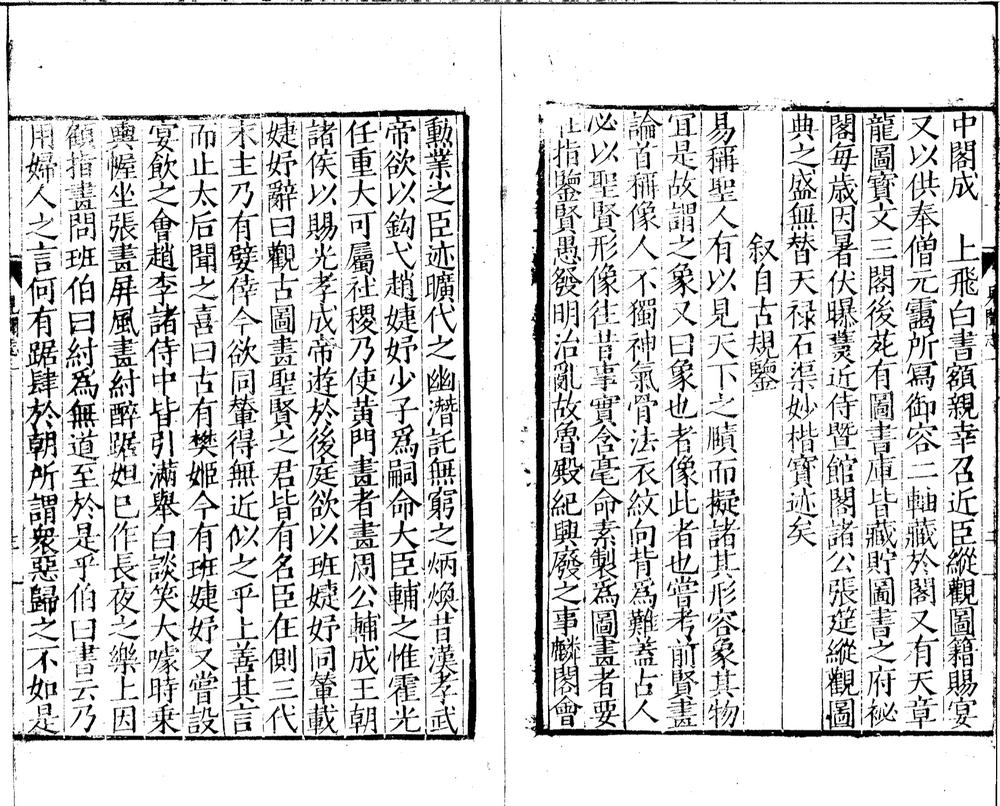 中閣成　上飛白書額親幸召近臣縱觀圖籍賜宴
又以供奉僧元靄所寫御容二軸藏於閣又有天章
龍圖寶文三閣後苑有圖書庫皆藏貯圖書之府祕
閣每歲因暑伏曝𤏪近侍暨館閣諸公張筵縱觀圖
典之盛無替天祿石渠妙楷寶迹矣
叙自古規鑒
易稱聖人有以見天下之賾而擬諸其形容象其物
宜是故謂之象又曰象也者像此者也嘗考前賢畫
論首稱像人不獨神氣骨法衣紋向背爲難蓋古人
必以聖賢形像往昔事實含毫命素製爲圖畫者要
在指鑒賢愚發明治亂故魯殿紀興廢之事麟閣會
勳業之臣迹曠代之幽潛託無窮之炳煥昔漢孝武
帝欲以鈎弋趙婕妤少子爲嗣命大臣輔之惟霍光
任重大可屬社稷乃使黃門畫者畫周公輔成王朝
諸侯以賜光孝成帝遊於後庭欲以班婕妤同輦載
婕妤辭曰觀古圖畫聖賢之君皆有名臣在側三代
末主乃有嬖倖今欲同輦得無近似之乎上善其言
而止太后聞之喜曰古有樊姬今有班婕妤又嘗設
宴飲之會趙李諸侍中皆引滿舉白談笑大噱時乘
輿幄坐張畫屏風畫紂醉踞妲己作長夜之樂上因
顧指畫問班伯曰紂爲無道至於是乎伯曰書云乃
用婦人之言何有踞肆於朝所謂衆惡歸之不如是